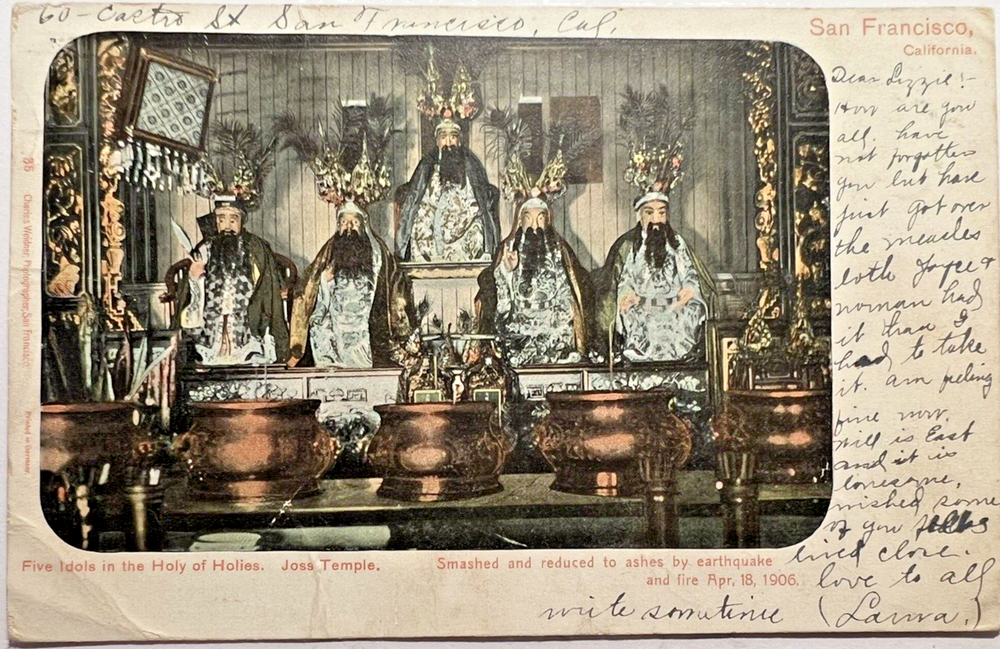 60 - Castro St San Francisco, Cal.
San Francisco,
California.
Dear Lizzie! -
How are you
all, have
not forgotten
you but have
just got over
the measles
both Joyce +
norman had
it than I
had to take
it. am feeling
fine now.
will is East
and it is
lonesome,
wished some
of you folks
lived close.
love to all
(Laura.)
write sometime
35 Charles Weidner, Photographer, San Francisco
Printed in Germany
Five Idols in the Holy of Holies. Joss Temple.
Smashed and reduced to ashes by earthquake
and fire Apr, 18, 1906.